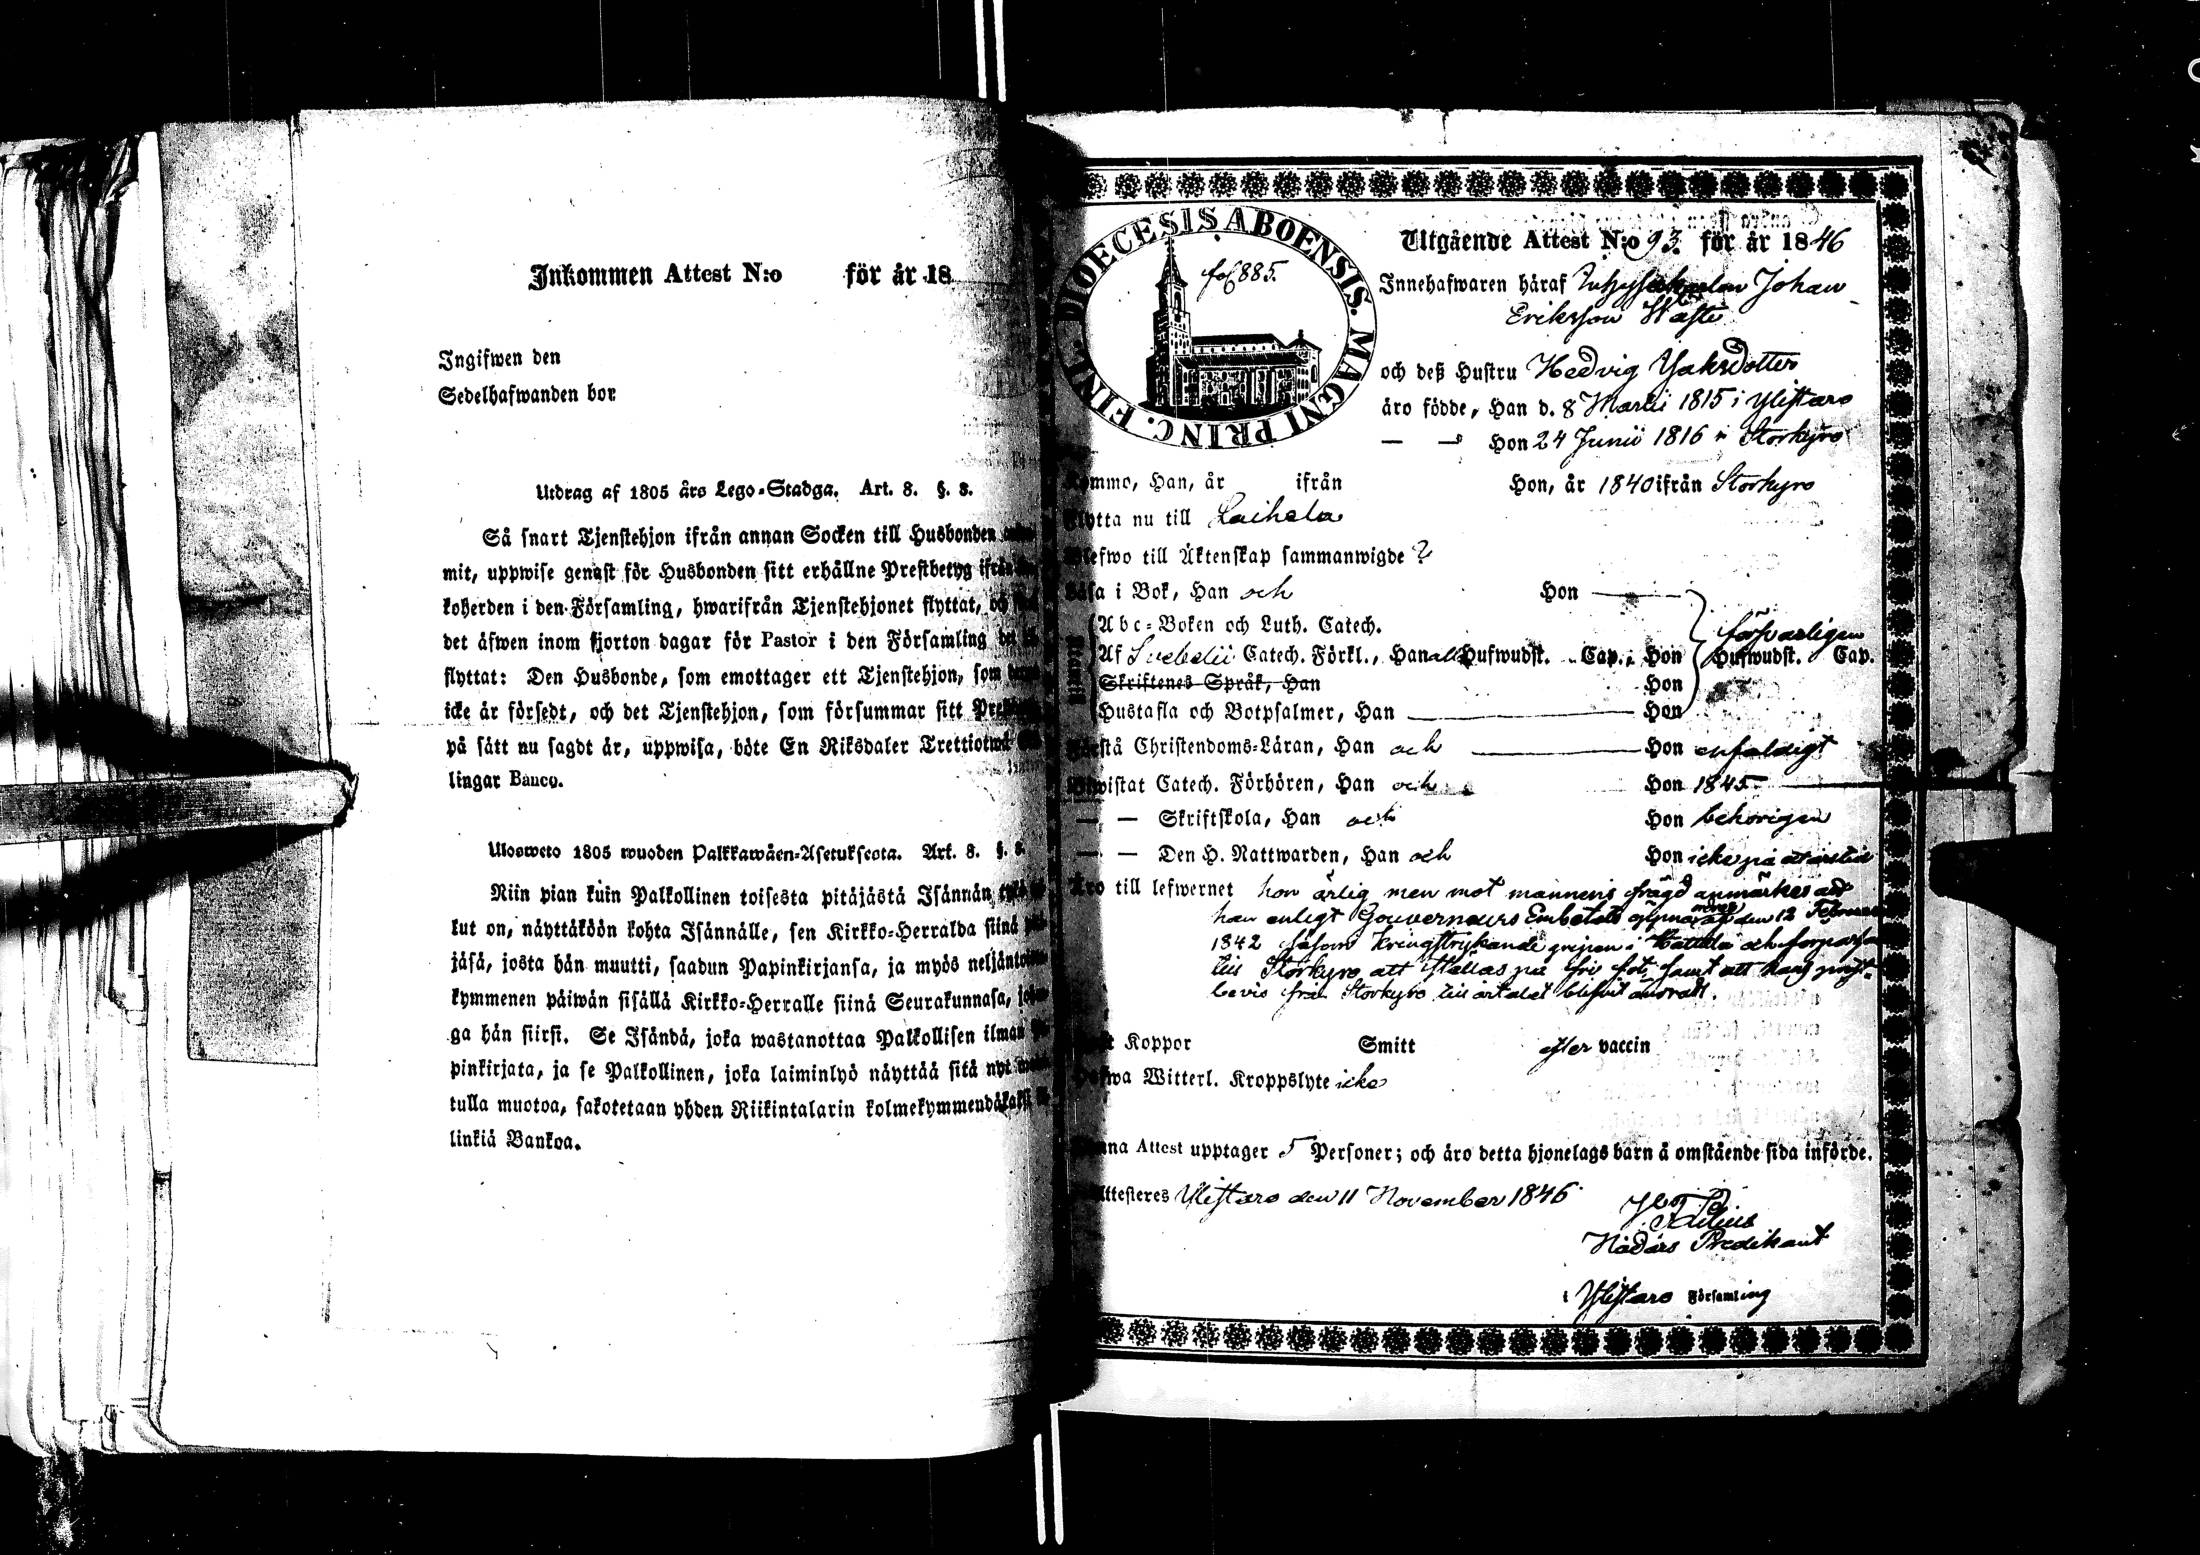 Inkommen Attest N:o för år 18
Ingifwen den
Sedelhafwanden bor
Utdrag af 1805 års Lego-Stadga. Art. 8. §. 8.
Så snart Tjenstehjon ifrån annan Socken till Husbonden
mit, uppwise genast för Husbonden sitt erhållne Prestbetyg ifrån
koherden i den Församling, hwarifrån Tjenstehjonet flyttat, och
det äfwen inom fjorton dagar för Pastor i den Församling
flyttat: Den Husbonde, som emottager ett Tjenstehjon, som
icke är försedt, och det Tjenstehjon, som försummar sitt
på sätt nu sagdt är, uppwisa, böte En Riksdaler Trettiotwå
lingar Banco.
Ulosweto 1805 wuoden Palkkawäen-Asetuksesta. Art. 8. §. 8.
Niin pian kuin Palkollinen toisesta pitäjästä Isännän
kut on, näyttäköön kohta Isännälle, sen Kirkko-Herralda siinä
jäsä, josta hän muutti, saadun Papinkirjansa, ja myös
kymmenen päiwän sisällä Kirkko-Herralle siinä Seurakunnasa,
ga hän siirsi. Se Isändä, joka wastanottaa Palkollisen ilman
pinkirjata, ja se Palkollinen, joka laiminlyö näyttää sitä nyt
tulla muotoa, sakotetaan yhden Riikintalarin kolmekymmendäkaksi
linkiä Bankoa.
DIOECESIS ABOENSIS. MAGNI PRINC. FINL.
fol 885.
Utgående Attest N:o 93. för år 1846
Innehafwaren häraf Johan
Eriksson Wästi
och deß Hustru Hedvig Jaksdotter
äro födde, Han d. 8 Martii 1815 i Ylistaro
— — Hon 24 Junii 1816 i Storkyro
Kommo, Han, år ifrån Hon, år 1840 ifrån Storkyro
Flytta nu till Laihela
Blefwo till Äktenskap sammanwigde ?
Läsa i Bok, Han och Hon
Abc-Boken och Luth. Catech.
försvarligen
Af Svebelii Catech. Förkl., Han all Hufwudst. Cap., Hon Hufwudst. Cap.
Skriftenes Språk, Han Hon
Hustafla och Botpsalmer, Han Hon
Förstå Christendoms-Läran, Han och Hon enfaldigt
Biwistat Catech. Förhören, Han och Hon 1845
— — Skriftskola, Han och Hon behörigen
— — Den H. Nattwarden, Han och Hon icke på ett års tid
Äro till lefwernet hon ärlig men mot mannens frägd anmärkes att
han enligt Gouverneurs Embetets den 12 Februarii
1842 såsom kringstrykande gripen i och förpassad
till Storkyro att ställas på fri fot, samt att hans prest-
bevis från Storkyro till blifvit
Haft Koppor Smitt efter vaccin
Hafwa Witterl. Kroppslyte icke
Denna Attest upptager 5 Personer; och äro detta hjonelags barn å omstående sida införde.
Attesteres Ylistaro den 11 November 1846
Nådårs Predikant
i Ylistaro Församling